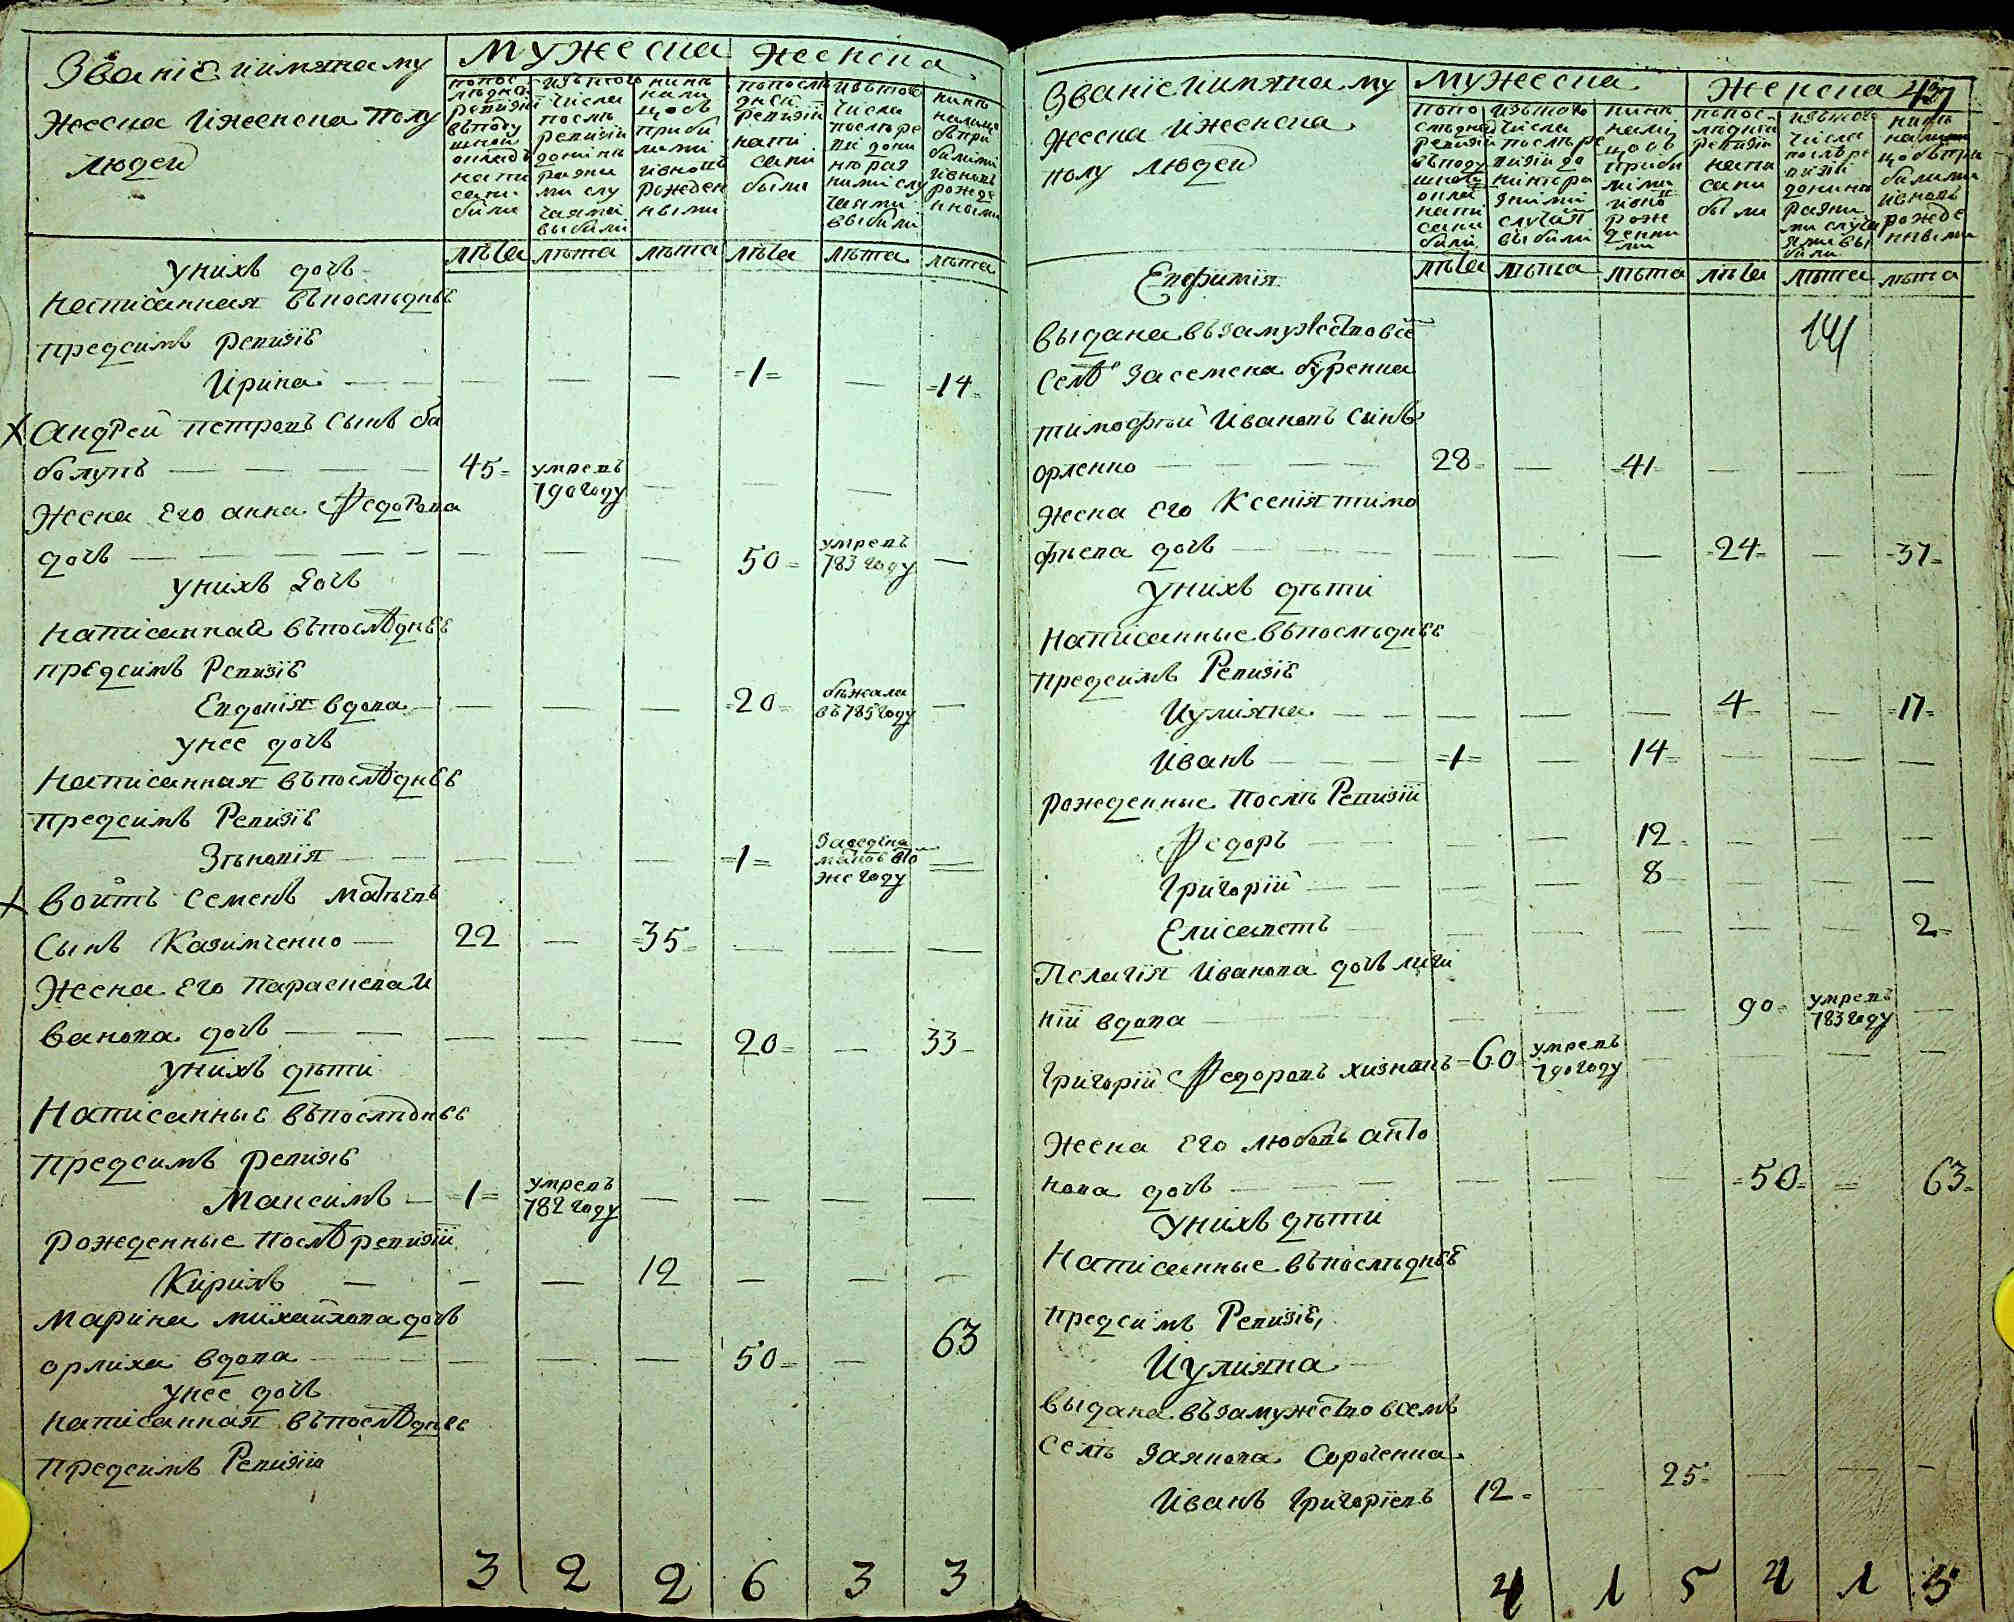 Званіе иимяна му
жеска иженска полу
людей
мужеска
женска
попос
лѣдней
ревизіи
вподу
шной
окладъ
напи
сани
были
изътого
числа
послѣ
ревизіи
донинѣ
разни
ми слу
чаями
выбыли
нинѣ
нали
цо съ
прибы
лими
ивновъ
рожден
ными
попослѣ
дней
ревизіи
напи
сани
были
изътого
числа
послѣ ре
визіи дони
нѣ раз
ними слу
чаями
выбыли
нинѣ
налицо
съ при
былими
ивновъ
рожде
нными
лѣта лѣта лѣта лѣта лѣта лѣта
унихъ дочь
написанная въпослѣднее
предсимъ ревизіе
Ирина — — — — — -1- — -14-
Х Андрей петровъ сынъ ба
балувъ — — — — 45- умревъ 790 году — — —
жена Его анна Федорова
дочь — — — — — — — — 50- умревъ 783 году —
унихъ дочь
написанная въпослѣднее
предсимъ Ревизіе
Евдокія вдова — — — — -20- бѣжала въ 785 году —
унее дочь
написанная въпослѣднее
предсимъ Ревизіе
Зѣновія — — — — — -1- заведена матерью тогоже году —
Х войтъ Семенъ матвѣевъ
сынъ Казимченко — 22 — -35- — — —
жена Его Параскевая и
ванова дочь — — — — — 20- — 33-
унихъ дѣти
Написанные въпослѣднее
предсимъ ревизіе
Максимъ — -1- умревъ 782 году — — — —
рожденные послѣ ревизіи
Кирилъ — — — 12 — — —
марина михайлова дочь
орлиха вдова — — — — 50- — 63
унее дочь
написанная въпослѣднее
предсимъ Ревизію
3 2 2 6 3 3
Званіе иимяна му
жеска иженска
полу людей
мужеска
женска
437
попо
слѣдней
ревизіи
въподу
шной
окла
напи
сани
были
изътого
числа
послѣ ре
визіи до
нинѣ ра
зними
случая
выбыли
нинѣ
нали
цо съ
прибы
лими
ивно
рож
денни
ми
попос-
лѣдней
ревизіи
напи
сани
были
изътого
числа
послѣ ре
визіи
донинѣ
разни
ми случа
ями вы
были
нинѣ
нали
цо съ при
былими
ивновъ
рожде
нными
лѣта лѣта лѣта лѣта лѣта лѣта
Евфимія
141
выдана възамужество всё
селѣ за семена буренка
тимофѣй Ивановъ сынъ
орленко — — — — 28- — 41- — — —
жена Его Ксенія тимо
фѣева дочь — — — — — -24- — -37-
унихъ дѣти
написанные въпослѣднее
предсимъ Ревизіе
Иулияна — — — — — 4- — -17-
Иванъ — — -1- — 14- — — —
рожденные послѣ Ревизіи
Федоръ — — — — 12- — — —
Григорій — — — — 8- — — —
Елисаветъ — — — — — — 2-
Пелагія Иванова дочь
ній вдова — — — — 90- умревъ 783 году —
Григорій Федоровъ хизнякъ -60- умревъ 790 году — — —
жена Его любовь анто
нова дочь — — — — — -50- — 63-
унихъ дѣти
Написанные въпослѣднее
предсимъ Ревизіе,
Иулияна —
выдана възамужество всемъ
селѣ заякова Сороченка
Иванъ Григоріевъ 12- — 25- — — —
4 1 5 4 1 5